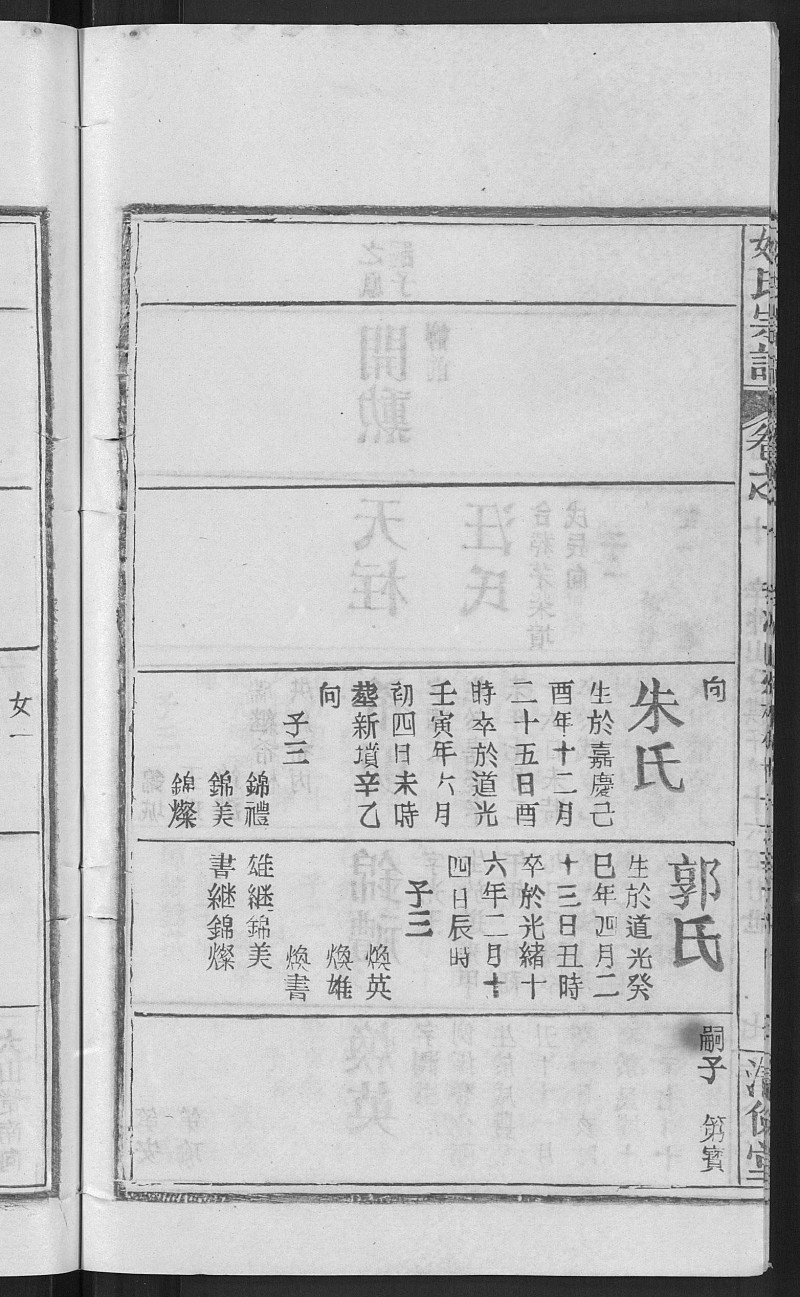 氏宗譜
卷之
向
朱氏
生於嘉慶己
酉年十二月
二十五日酉
時卒於道光
壬寅年六月
初四日未時
塟新墳辛乙
向
子三
錦禮
錦美
錦燦
郭氏
生於道光癸
巳年四月二
十三日丑時
卒於光緒十
六年二月十
四日辰時
子三
煥英
煥雄
煥書
雄継錦美
書継錦燦
嗣子
第寶
女一